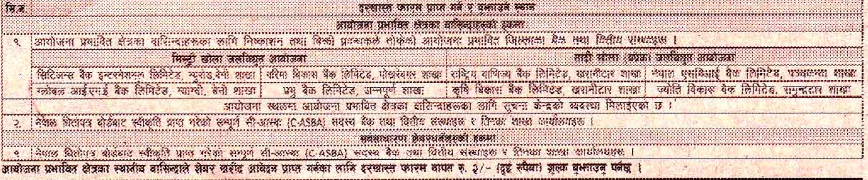 सि.नं. दरखास्त फारम प्राप्त गर्ने र बुझाउने स्थान
आयोजना प्रभावित क्षेत्रका बासिन्दाहरूको हकमा
१. आयोजना प्रभावित क्षेत्रका बासिन्दाहरूका लागि निष्काशन तथा बिक्री प्रबन्धकले तोकेको आयोजना प्रभावित जिल्लाका बैंक तथा वित्तीय संस्थाहरू ।
मिस्ट्री खोला जलविद्युत आयोजना
सिटिजन्स बैंक इन्टरनेशनल लिमिटेड, न्यूरोड,बेनी शाखा गरिमा विकास बैंक लिमिटेड, पोखरेबगर शाखा राष्ट्रिय वाणिज्य बैंक लिमिटेड, खरानीटार शाखा नेपाल एसबिआई बैंक लिमिटेड, शाखा
ग्लोबल आईएमई बैंक लिमिटेड, म्याग्दी, बेनी शाखा प्रभु बैंक लिमिटेड, अन्नपूर्ण शाखा कृषि विकास बैंक लिमिटेड, खरानीटार शाखा ज्योति विकास बैंक लिमिटेड, समुन्द्रटार शाखा
आयोजना स्थलमा आयोजना प्रभावित क्षेत्रका बासिन्दाहरूका लागि सूचना केन्द्रको व्यवस्था मिलाईएको छ ।
२. नेपाल धितोपत्र बोर्डबाट स्वीकृति प्राप्त गरेको सम्पूर्ण सी-आस्बा (C-ASBA) सदस्य बैंक तथा वित्तीय संस्थाहरू र तिनका शाखा कार्यालयहरू ।
सर्वसाधारण हकमा
१ नेपाल धितोपत्र बोर्डबाट स्वीकृति प्राप्त गरेको सम्पूर्ण सी-आस्बा (C-ASBA) सदस्य बैंक तथा वित्तीय संस्थाहरू र तिनका शाखा कार्यालयहरू ।
आयोजना प्रभावित क्षेत्रका स्थानीय बासिन्दाले शेयर खरीद आवेदन प्राप्त गर्नका लागि दरखास्त फारम वापत रु. ३/- शुल्क बुझाउनु पर्नेछ ।